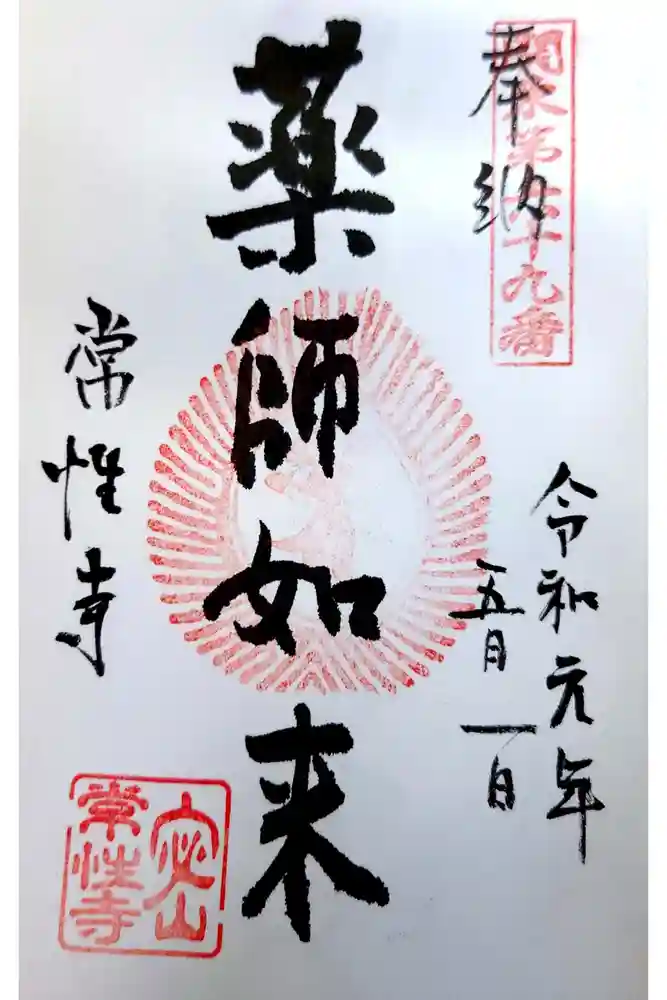 関東第六十九番
奉納
令和元年
五月一日
薬師如来
常性寺
常性寺